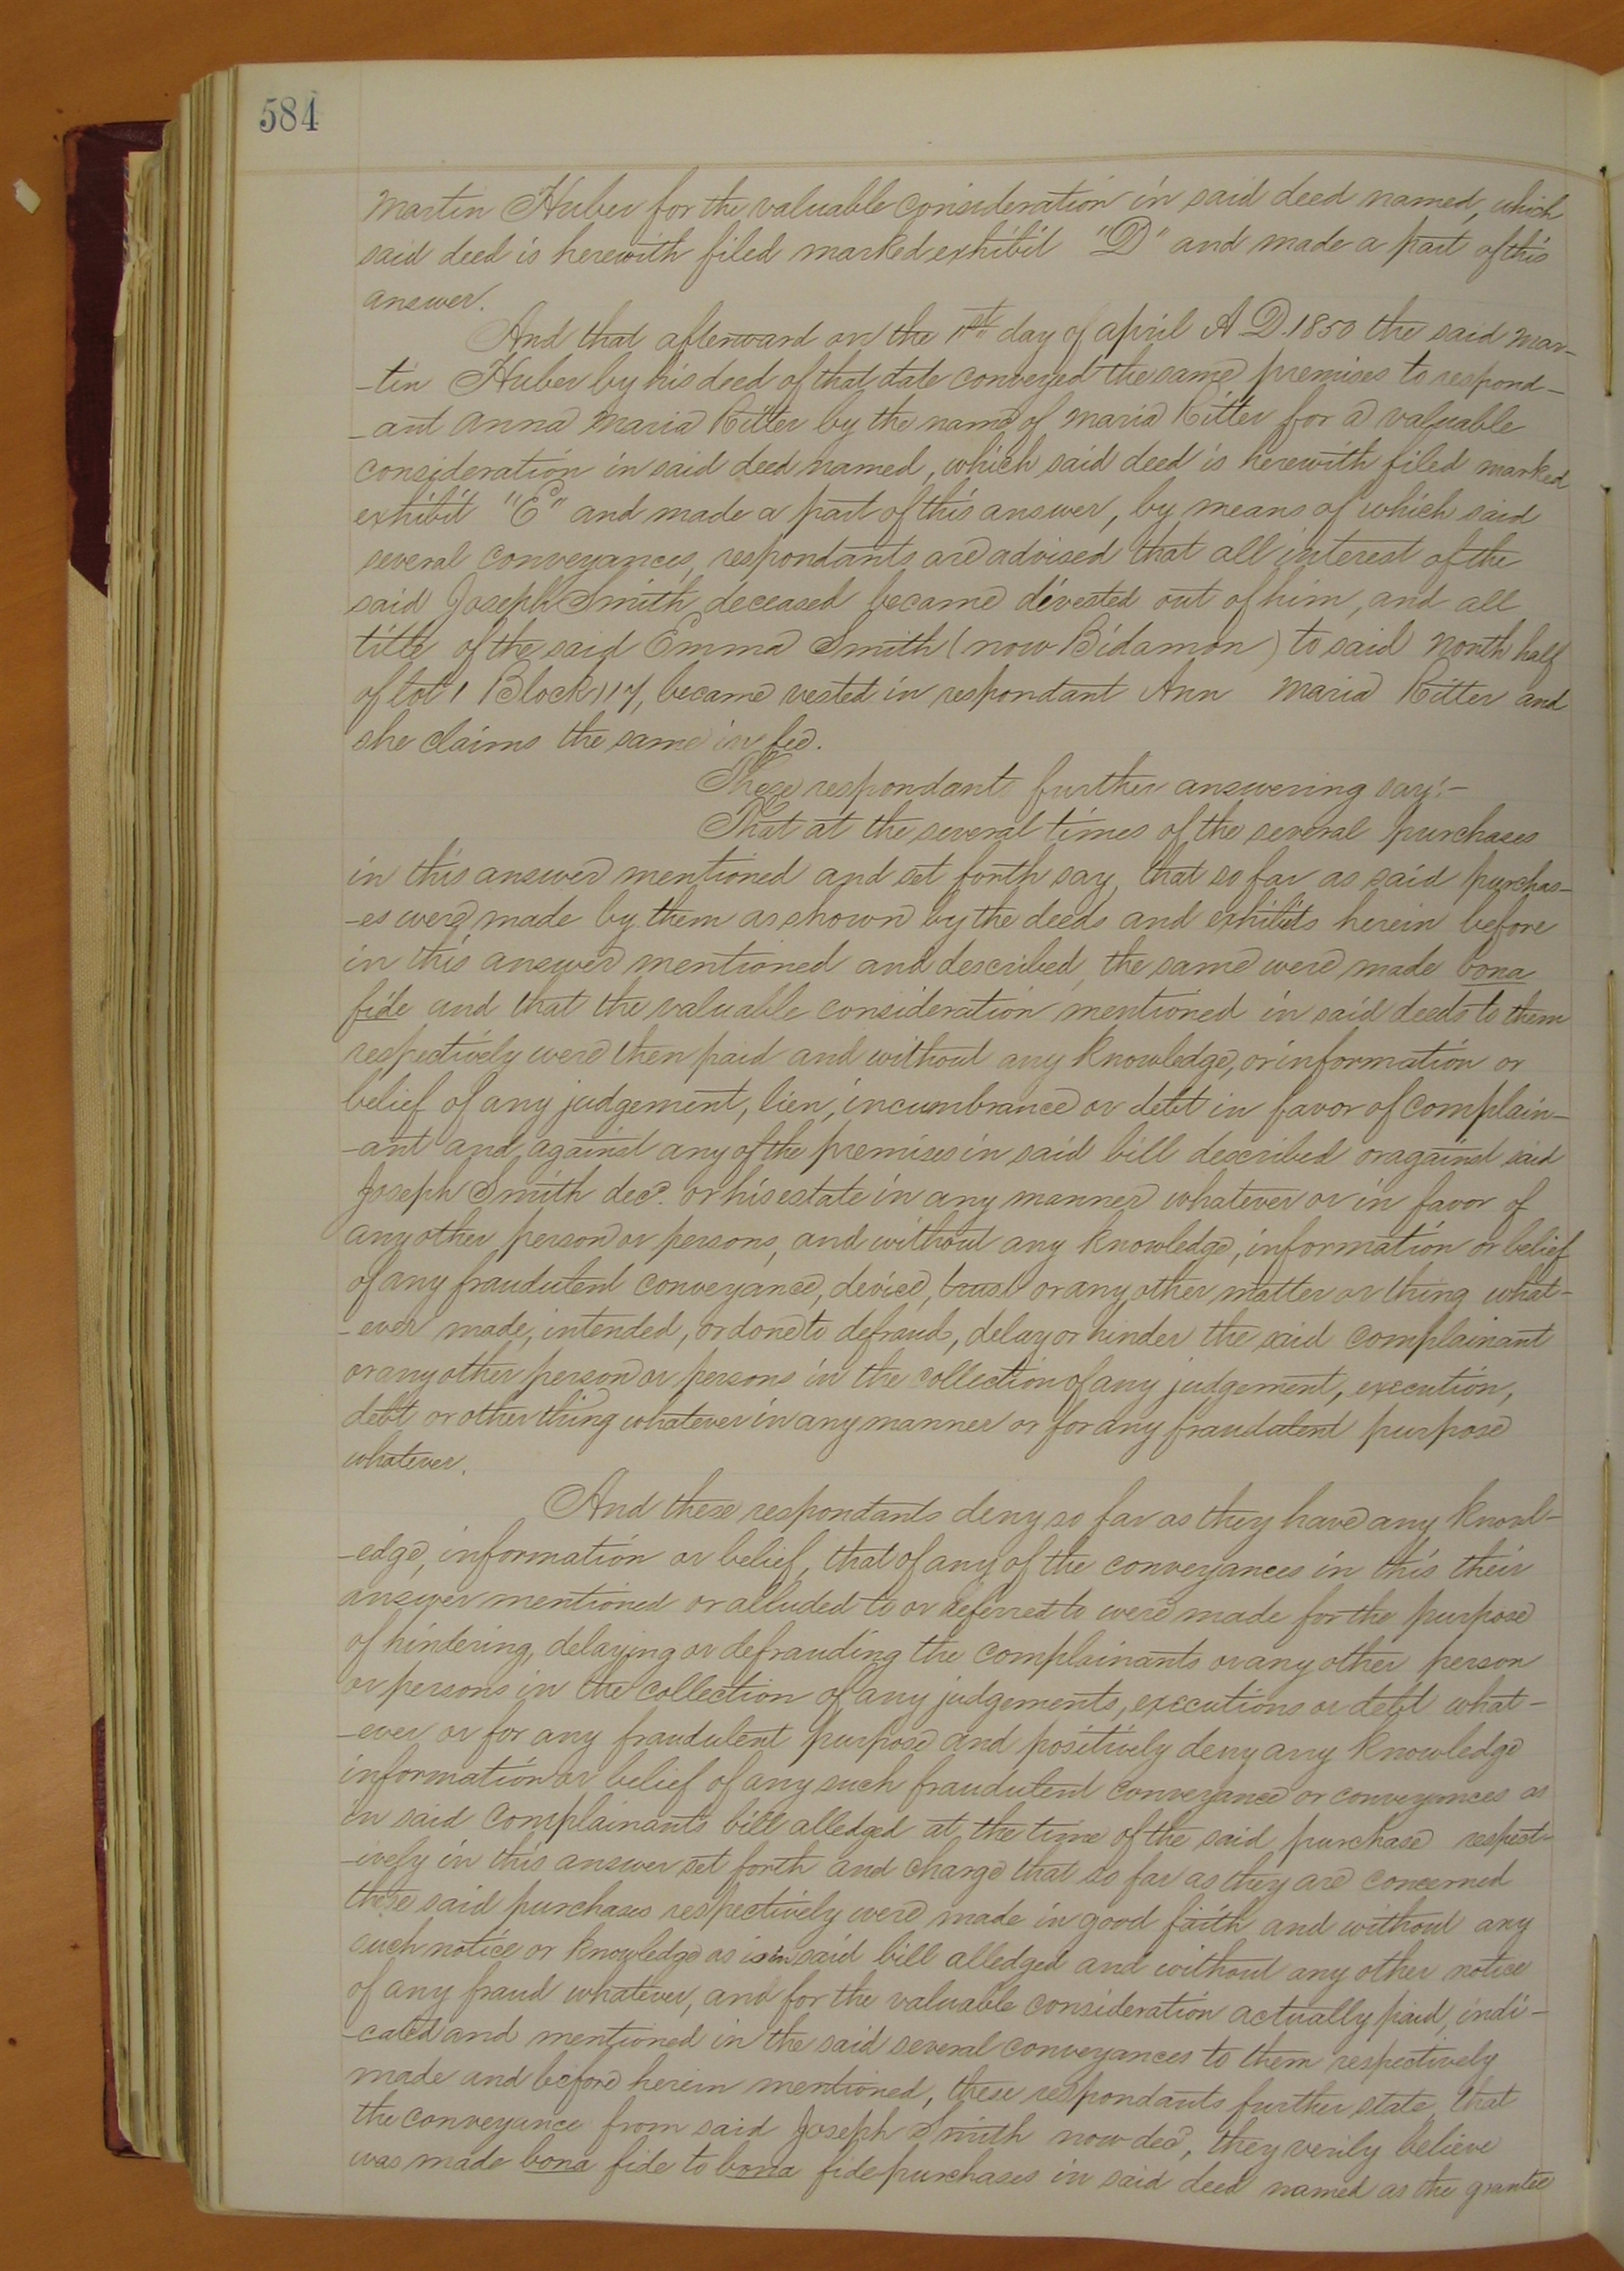 584
Martin Huber for the valuable consideration in said deed named, which
said deed is herewith filed marked exhibit "D" and made a part of this
answer.
And that afterward on the 1st day of april A D. 1850 the said Mar-
-tin Huber by his deed of that date conveyed the same premises to respond-
-ant Anna Maria Ritter by the name of Maria Ritter for a valuable
consideration in said deed named, which said deed is herewith filed marked
exhibit "E" and made a part of this answer, by means of which said
several conveyances, respondants are advised that all interest of the
said Joseph Smith deceased became divested out of him, and all
title of the said Emma Smith (now Bidamon) to said North half
of lot 1 Block 117, became vested in respondant Ann Maria Ritter and
she claims the same in fee.
These respondants further answering say:-
That at the several times of the several purchases
in this answer mentioned and set forth say, that so far as said purchas-
-es were made by them as shown by the deeds and exhibits herein before
in this answer mentioned and described, the same were made bona
fide and that the valuable consideration mentioned in said deeds to them
respectively were then paid and without any knowledge, or information or
belief of any judgement, lien, incumbrance or debt in favor of Complain-
-ant and against any of the premises in said bill described or against said
Joseph Smith decd. or his estate in any manner whatever or in favor of
any other person or persons, and without any knowledge, information or belief
of any fraudulent conveyance, device, trust or any other matter or thing what-
-ever made, intended, or done to defraud, delay or hinder the said complainant
or any other person or persons in the collection of any judgement, execution,
debt or other thing whatever in any manner or for any fraudulent purpose
whatever.
And these respondants deny so far as they have any knowl-
-edge, information or belief, that of any of the conveyances in this their
answer mentioned or alluded to or deferred to were made for the purpose
of hindering, delaying or defrauding the complainants or any other person
or persons in the collection of any judgements, executions or debt what-
-ever or for any fraudulent purpose and positively deny any knowledge
information or belief of any such fraudulent conveyance or conveyances as
in said complainants bill alledged at the time of the said purchase respect-
-ively in this answer set forth and charge that so far as they are concerned
these said purchases respectively were made in good faith and without any
such notice or knowledge as is in said bill alledged and without any other notice
of any fraud whatever, and for the valuable consideration actually paid, indi-
-cated and mentioned in the said several conveyances to them respectively
made and before herein mentioned, these respondants further state, that
the conveyance from said Joseph Smith now decd, they verily believe
was made bona fide to bona fide purchases in said deed named as the grantee